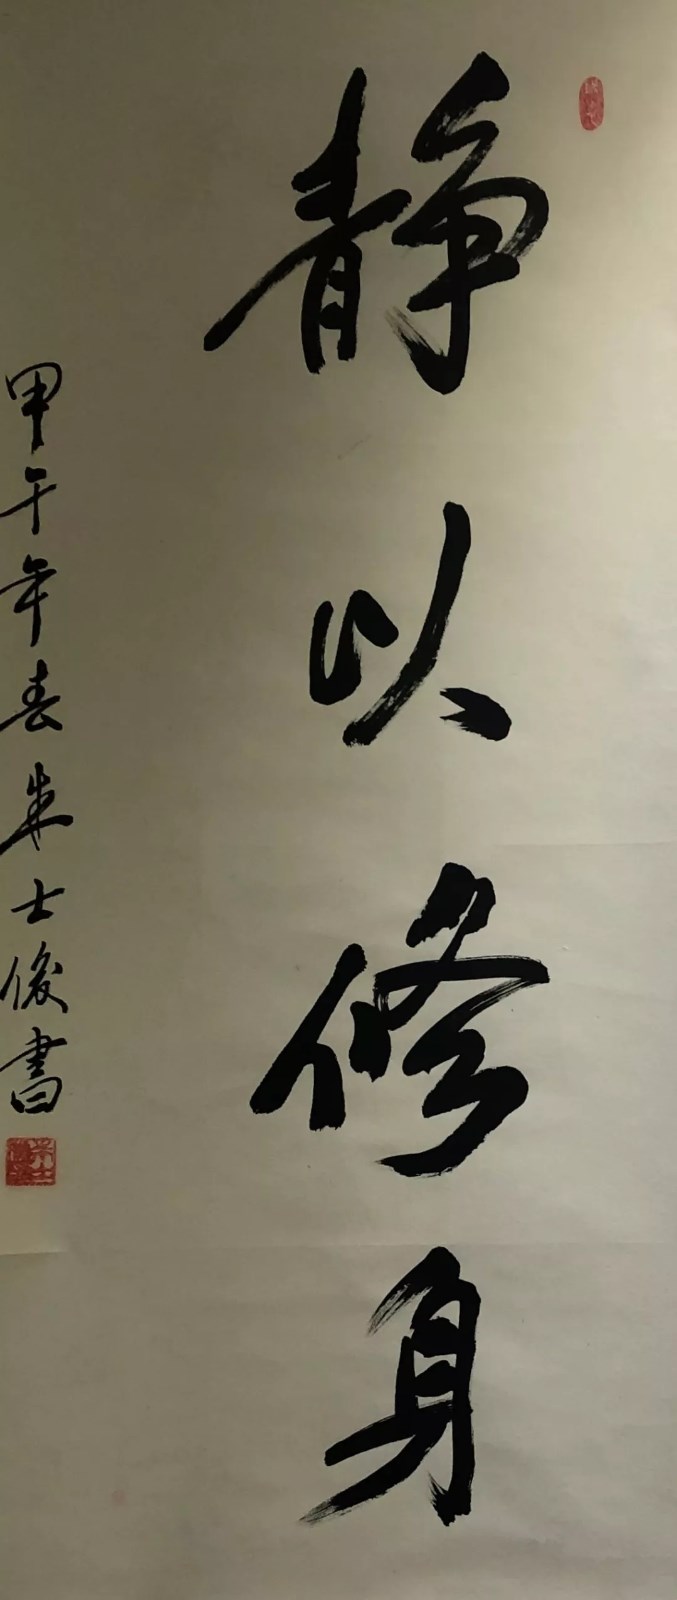 静以修身
甲午年春朱士俊書